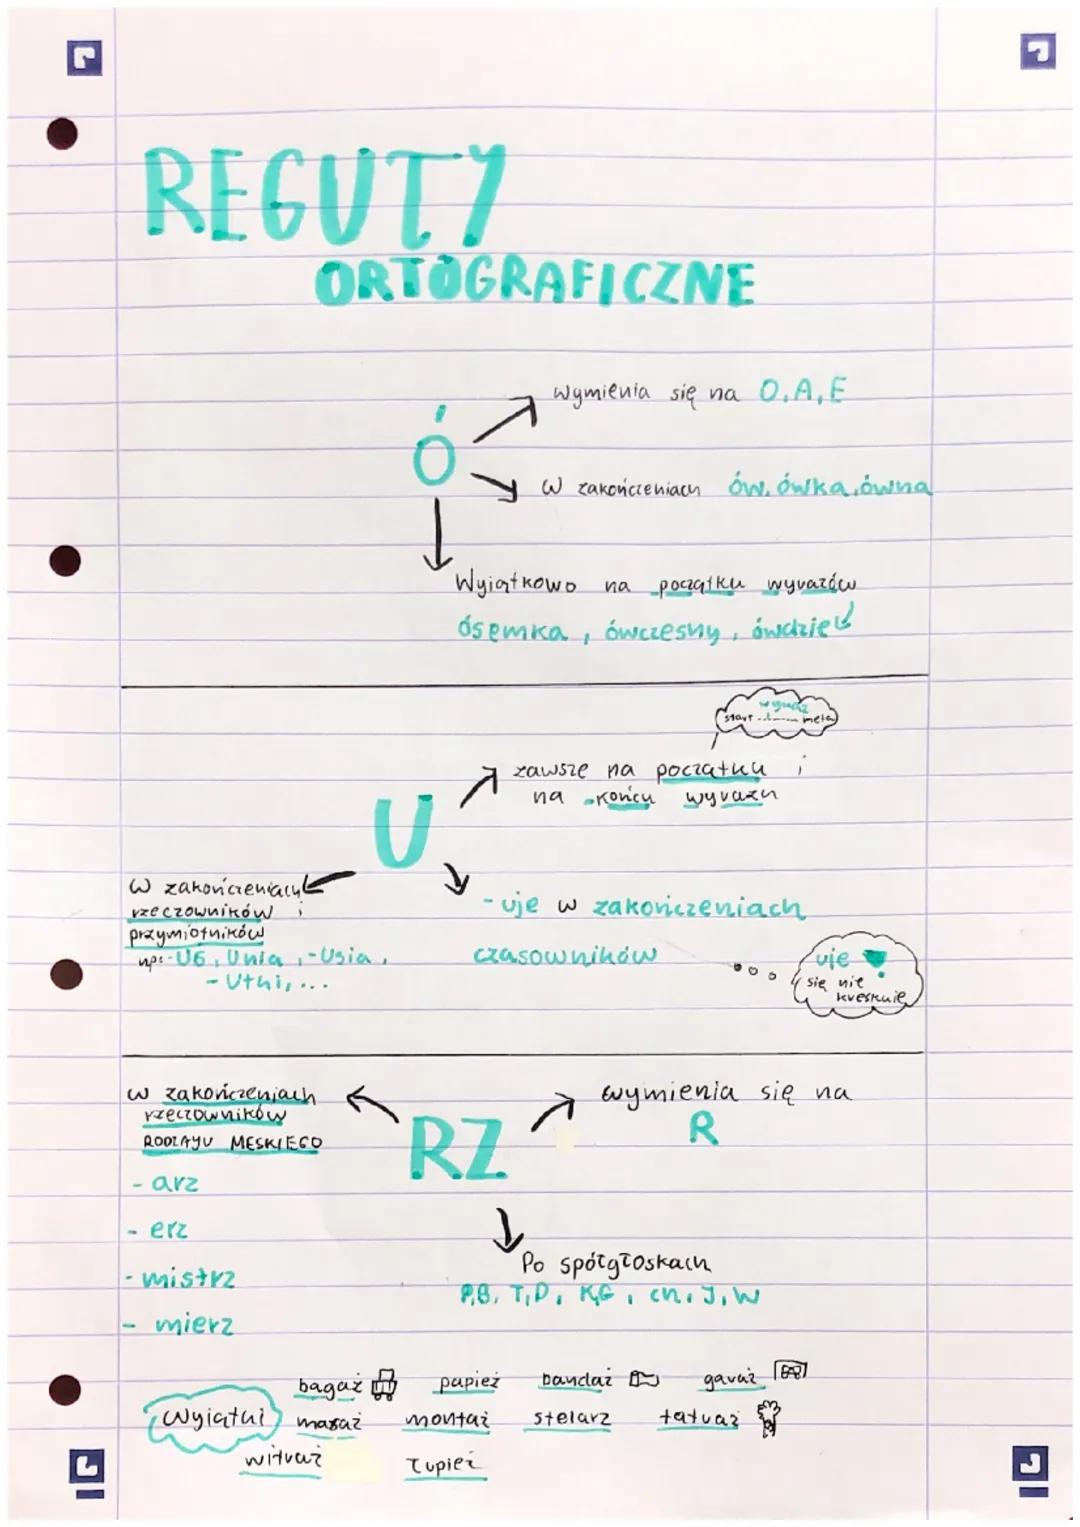 REGUŁY
ORTOGRAFICZNE
Ó
wymienia się na O, A, E
w zakończeniach ów, ówka, ówna
Wyjątkowo na początku wyrazów
ósemka, ówczesny, ówdzie
wyraz
start ........ meta
U
zawsze na początku i
na końcu wyrazu
w zakończeniach
rzeczowników i
przymiotników
np: -Unia, -Usia,
- Utki, ...
- uje w zakończeniach
czasowników
uje !
się nie
kreskuje
RZ
w zakończeniach
rzeczowników
RODZAJU MĘSKIEGO
- arz
- erz
- mistrz
- mierz
wymienia się na
R
Po spółgłoskach
P,B, T,D, K,G, ch, J, W
Wyjątki
bagaż papież bandaż garaż
masaż montaż stelarz tatuaż
witraż łupież